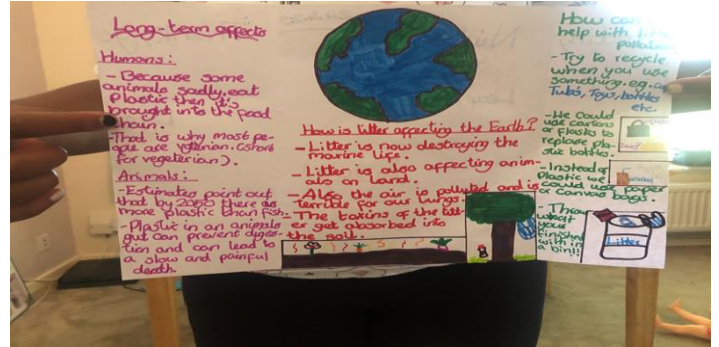 Long-term affects
Humans:
- Because some
animals sadly, eat
plastic then it's
brought into the food
chain.
- That is why most pe-
ople are vegterian (short
for vegeterian).
Animals:
- Estimates point out
that by 2050 there is
more plastic than fish.
- Plastic in an animals
gut can prevent diges-
tion and can lead to
a slow and painful
death.
How is litter affecting the Earth?
- Litter is now destroying the
marine life.
- Litter is also affecting anim-
als on land.
- Also the air is polluted and is
terrible for our lungs.
- The toxins of the litt-
er get absorbed into
the soil.
How can
help with litter
pollution
- Try to recycle
when you use
something. eg.
Tubs, Toys, bottles
etc.
- We could
use cartons
or flasks to
replace pla-
stic bottles.
- Instead of
Plastic we
could use paper
or canvas bags.
- Throw
what
your
finished
with in
a bin!!
Litter